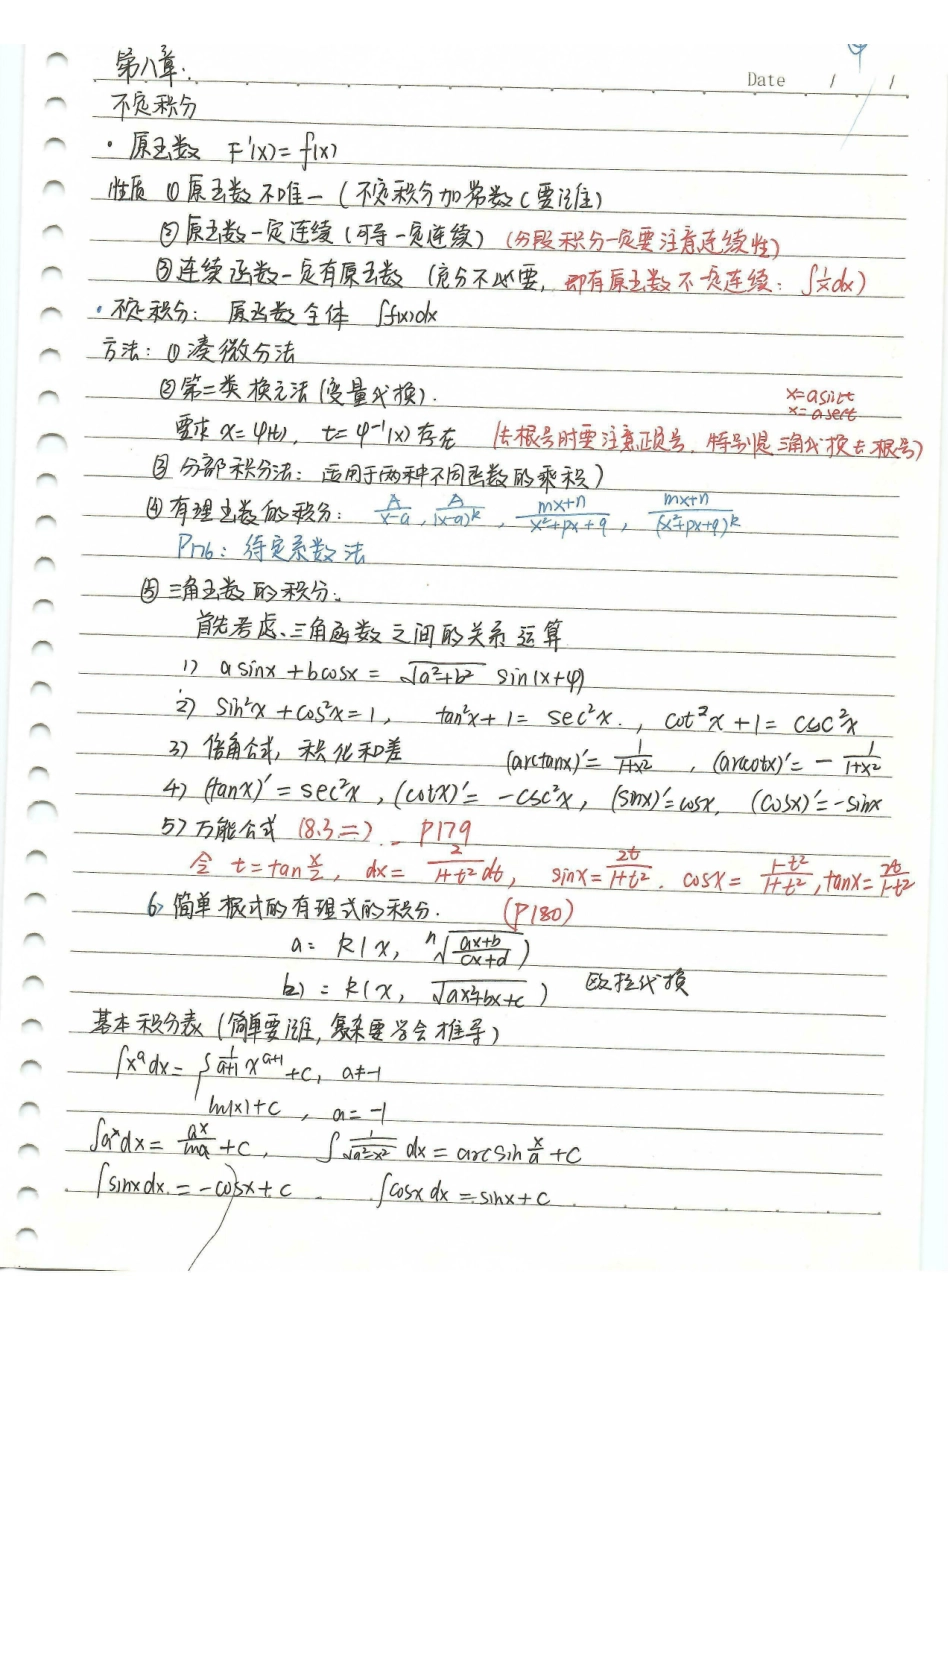 第八章.
Date / /
不定积分
· 原函数 F'(x)=f(x)
性质 ①原函数不唯一(不定积分加常数C要记住)
②原函数一定连续(可导一定连续)(分段积分一定要注意连续性)
③连续函数一定有原函数(充分不必要,即有原函数不一定连续: ∫1/x dx)
· 不定积分: 原函数全体 ∫f(x)dx
方法: ①凑微分法
②第二类换元法(变量代换).
x=asint
x=asect
要求 x=φ(t), t=φ⁻¹(x)存在 (去根号时要注意正负号.特别是三角代换去根号)
③分部积分法: 适用于两种不同函数的乘积)
④有理函数的积分: A/(x-a), A/(x-a)^k, (mx+n)/(x²+px+q), (mx+n)/(x²+px+q)^k
P176: 待定系数法
⑤三角函数的积分.
首先考虑.三角函数之间的关系运算
1) asinx+bcosx=√(a²+b²) sin(x+φ)
2) sin²x+cos²x=1, tan²x+1=sec²x., cot²x+1=csc²x
3) 倍角公式, 积化和差 (arctanx)'=1/(1+x²), (arccotx)'=-1/(1+x²)
4) (tanx)'=sec²x, (cotx)'=-csc²x, (sinx)'=cosx, (cosx)'=-sinx
5) 万能公式 (8.3二) P179
令 t=tan x/2, dx=2/(1+t²)dt, sinx=2t/(1+t²). cosx=(1-t²)/(1+t²), tanx=2t/(1-t²)
6) 简单根式的有理式的积分. (P180)
a: R(x, ⁿ√((ax+b)/(cx+d)))
b): R(x, √(ax²+bx+c)) 欧拉代换
基本积分表(简单要记住,复杂要学会推导)
∫x^a dx={1/(a+1) x^(a+1)+C, a≠-1
ln|x|+C, a=-1
∫a^x dx=a^x/lna+C, ∫1/√(a²-x²) dx=arcsin x/a+C
∫sinxdx=-cosx+C ∫cosxdx=sinx+C